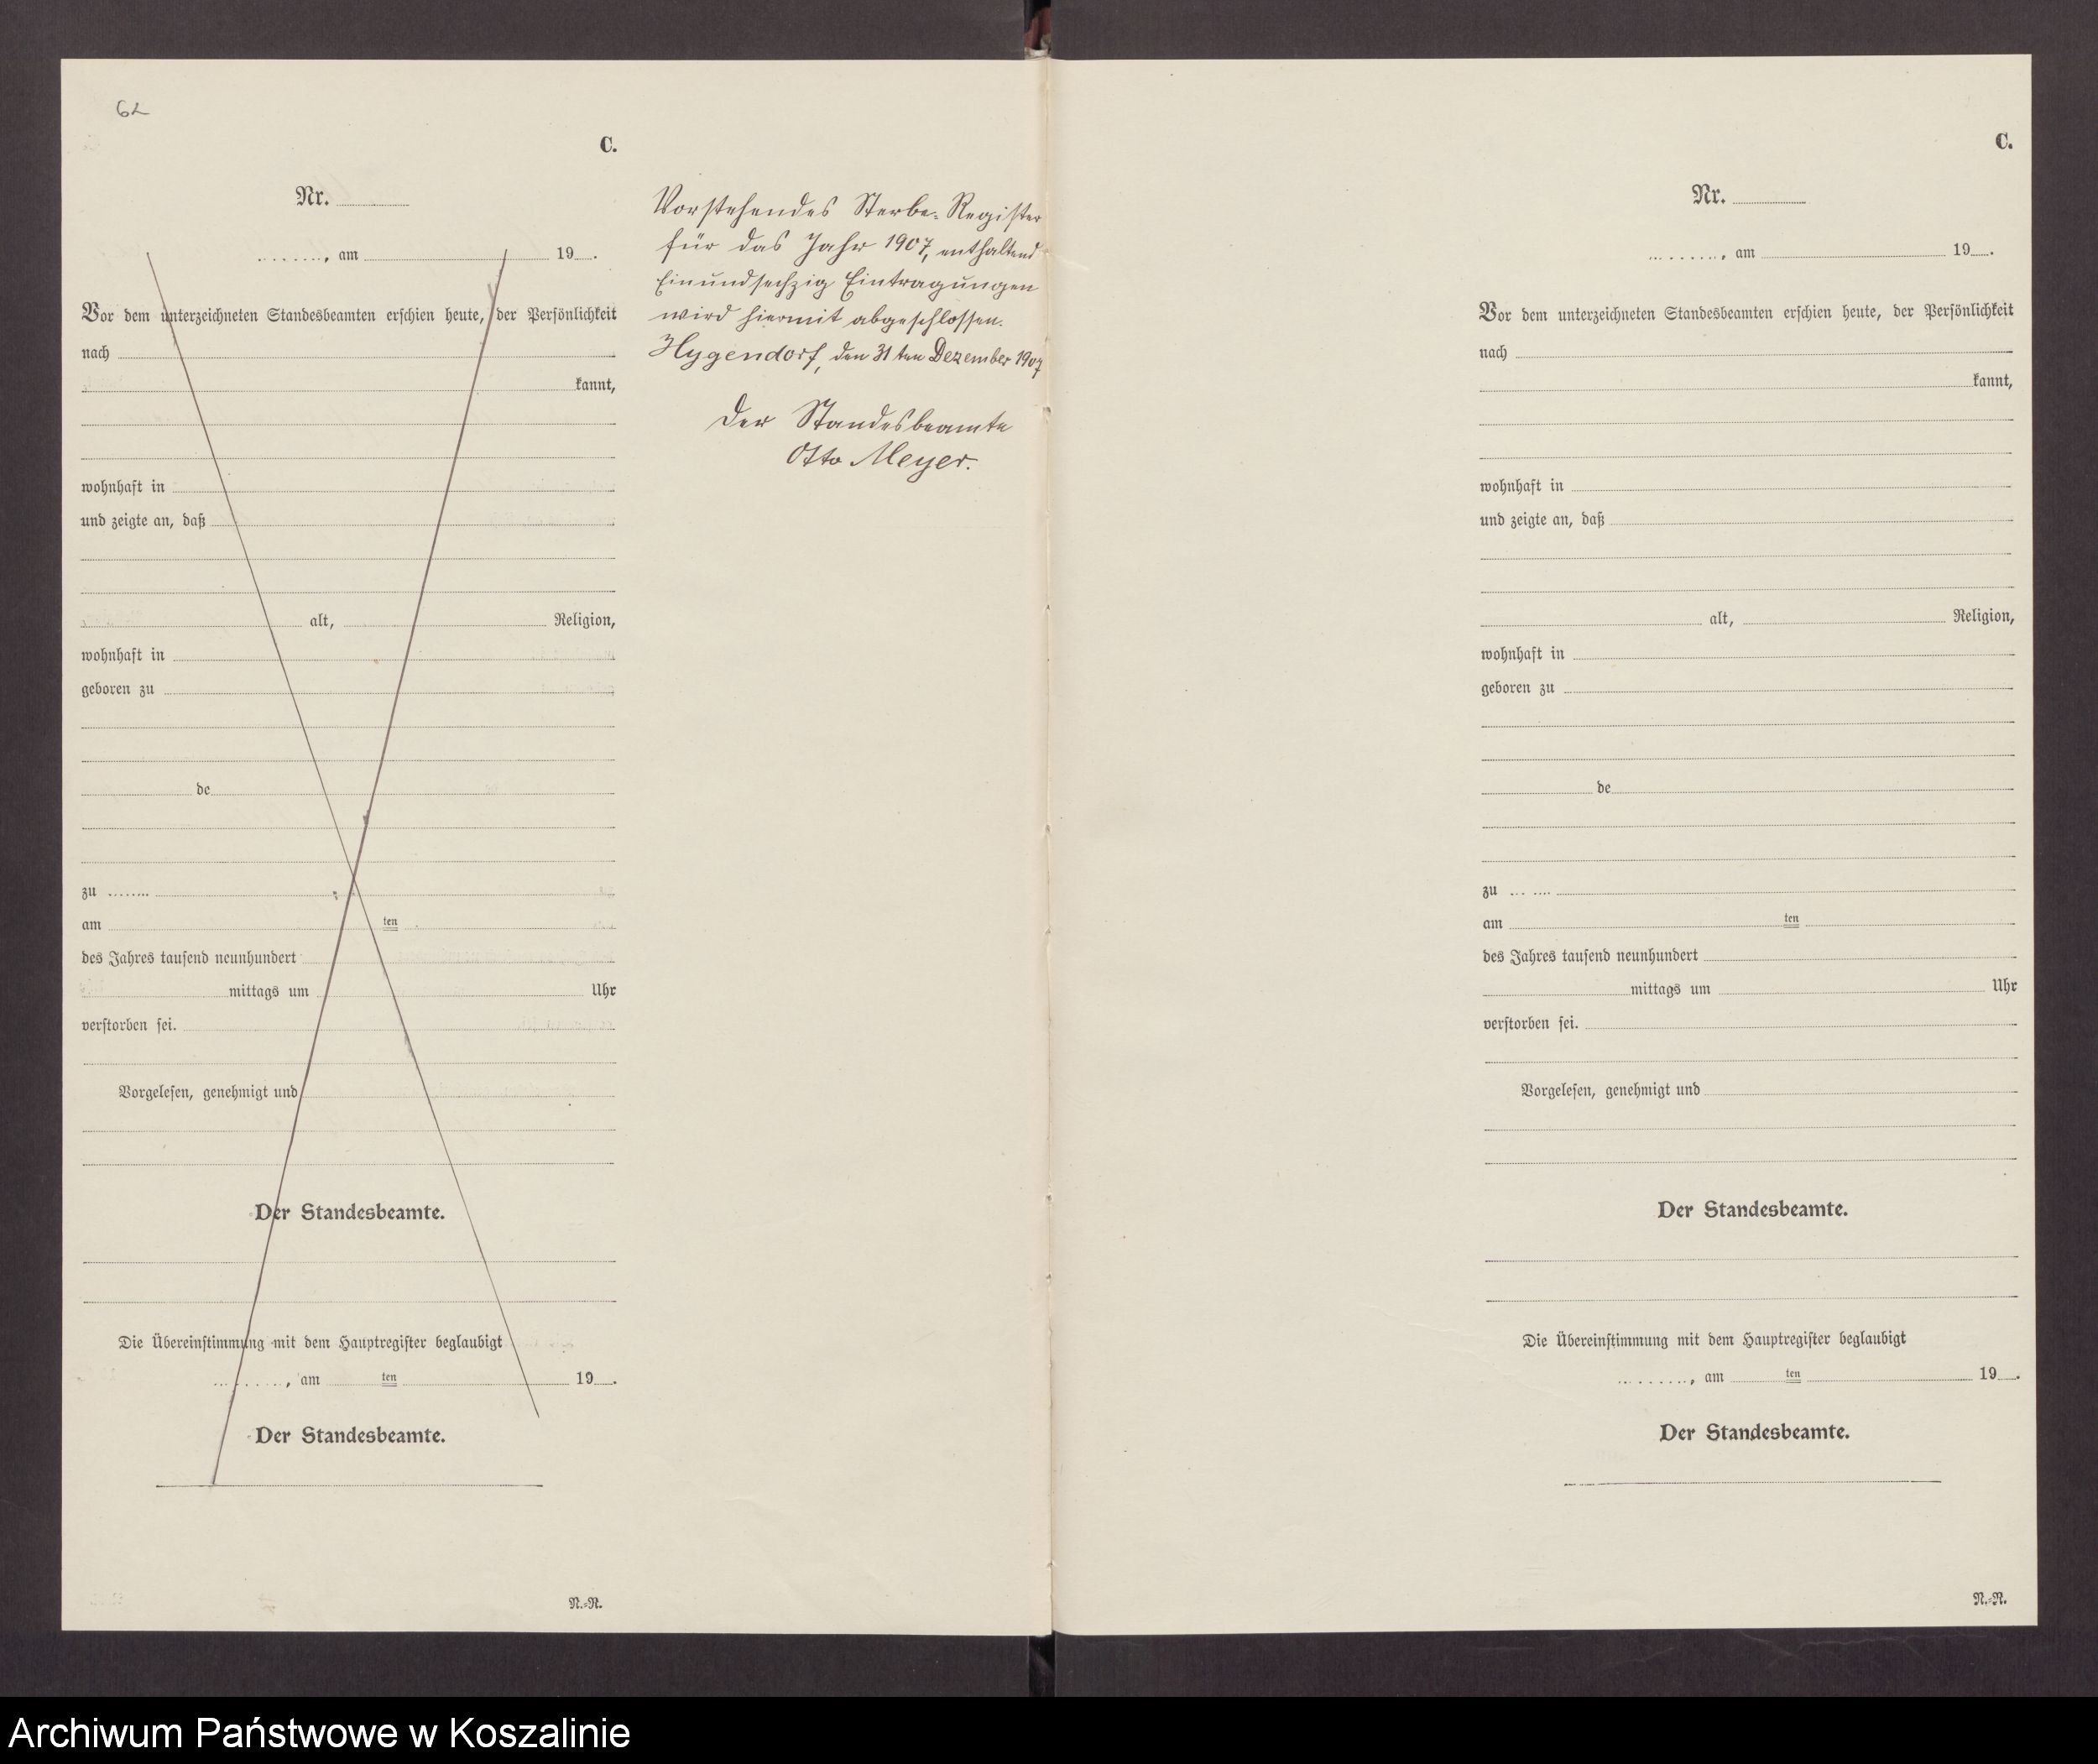 62
C.
Nr.
, am 19 .
Vor dem unterzeichneten Standesbeamten erschien heute, der Persönlichkeit
nach
kannt,
wohnhaft in
und zeigte an, daß
alt, Religion,
wohnhaft in
geboren zu
de
zu
am ten
des Jahres tausend neunhundert
mittags um Uhr
verstorben sei.
Vorgelesen, genehmigt und
Der Standesbeamte.
Die Übereinstimmung mit dem Hauptregister beglaubigt
, am ten 19 .
Der Standesbeamte.
N.-R.
Vorstehendes Sterbe-Register
für das Jahr 1907, enthaltend
Einundsechzig Eintragungen
wird hiermit abgeschlossen.
den 31ten Dezember 1907
Der Standesbeamte
Otto Meyer.
C.
Nr.
, am 19 .
Vor dem unterzeichneten Standesbeamten erschien heute, der Persönlichkeit
nach
kannt,
wohnhaft in
und zeigte an, daß
alt, Religion,
wohnhaft in
geboren zu
de
zu
am ten
des Jahres tausend neunhundert
mittags um Uhr
verstorben sei.
Vorgelesen, genehmigt und
Der Standesbeamte.
Die Übereinstimmung mit dem Hauptregister beglaubigt
, am ten 19 .
Der Standesbeamte.
N.-R.
Archiwum Państwowe w Koszalinie